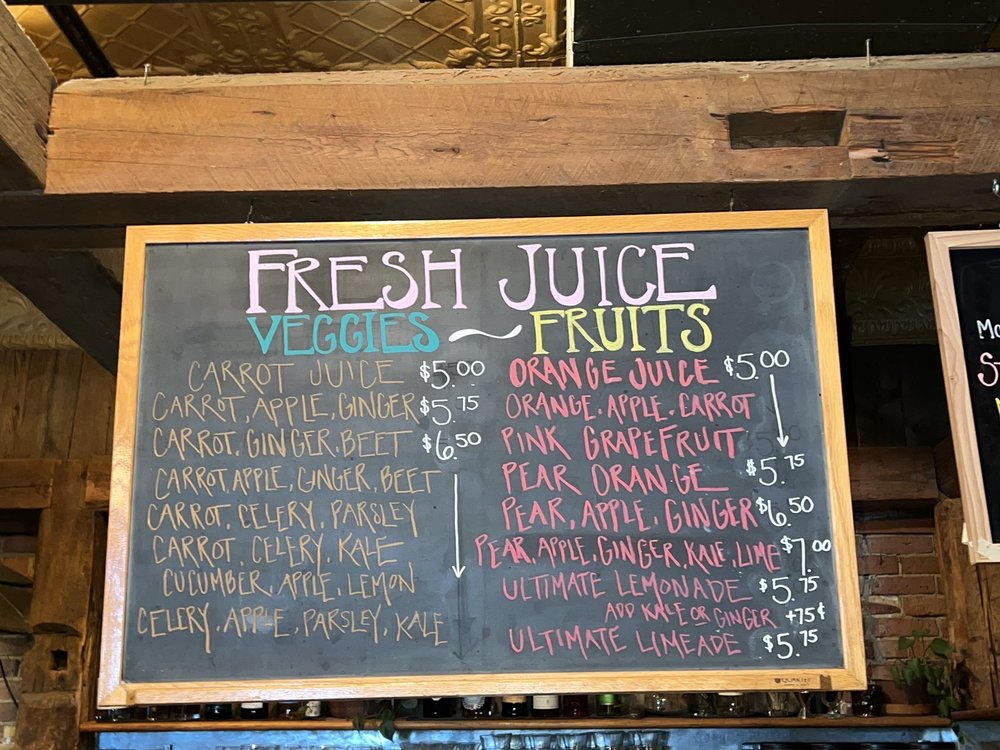 FRESH JUICE
VEGGIES ~ FRUITS
CARROT JUICE $5.00
CARROT, APPLE, GINGER $5.75
CARROT, GINGER, BEET $6.50
CARROT, APPLE, GINGER, BEET
CARROT, CELERY, PARSLEY
CARROT, CELERY, KALE
CUCUMBER, APPLE, LEMON
CELERY, APPLE, PARSLEY, KALE
ORANGE JUICE $5.00
ORANGE, APPLE, CARROT
PINK GRAPEFRUIT
PEAR ORANGE $5.75
PEAR, APPLE, GINGER $6.50
PEAR, APPLE, GINGER, KALE, LIME $7.00
ULTIMATE LEMONADE $5.75
ADD KALE OR GINGER +75¢
ULTIMATE LIMEADE $5.75